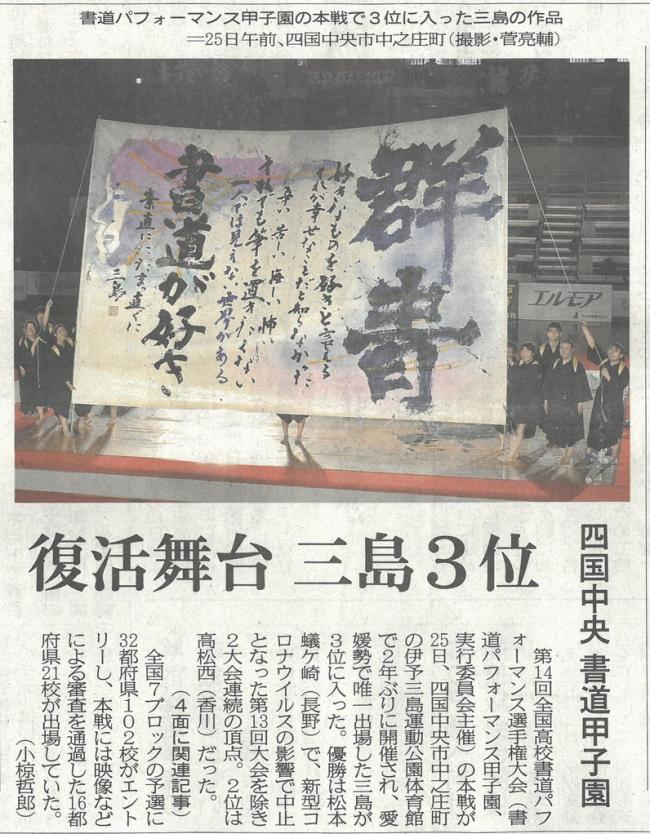 書道パフォーマンス甲子園の本戦で3位に入った三島の作品
=25日午前、四国中央市中之庄町(撮影・菅亮輔)
群青
好きなものを好きと言える
それが幸せなことだと知らなかった
辛い 苦しい 悔しい 怖い
それでも筆を置きたくない
一人では見えない世界がある
書道が好き
素直に ただまっ直ぐに
三島
エルモア
四国中央 書道甲子園
復活舞台 三島3位
第14回全国高校書道パフ
ォーマンス選手権大会(書
道パフォーマンス甲子園、
実行委員会主催)の本戦が
25日、四国中央市中之庄町
の伊予三島運動公園体育館
で2年ぶりに開催され、愛
媛勢で唯一出場した三島が
3位に入った。優勝は松本
蟻ケ崎(長野)で、新型コ
ロナウイルスの影響で中止
となった第13回大会を除き
2大会連続の頂点。2位は
高松西(香川)だった。
(4面に関連記事)
全国7ブロックの予選に
32都府県102校がエント
リーし、本戦には映像など
による審査を通過した16都
府県21校が出場していた。
(小椋哲郎)